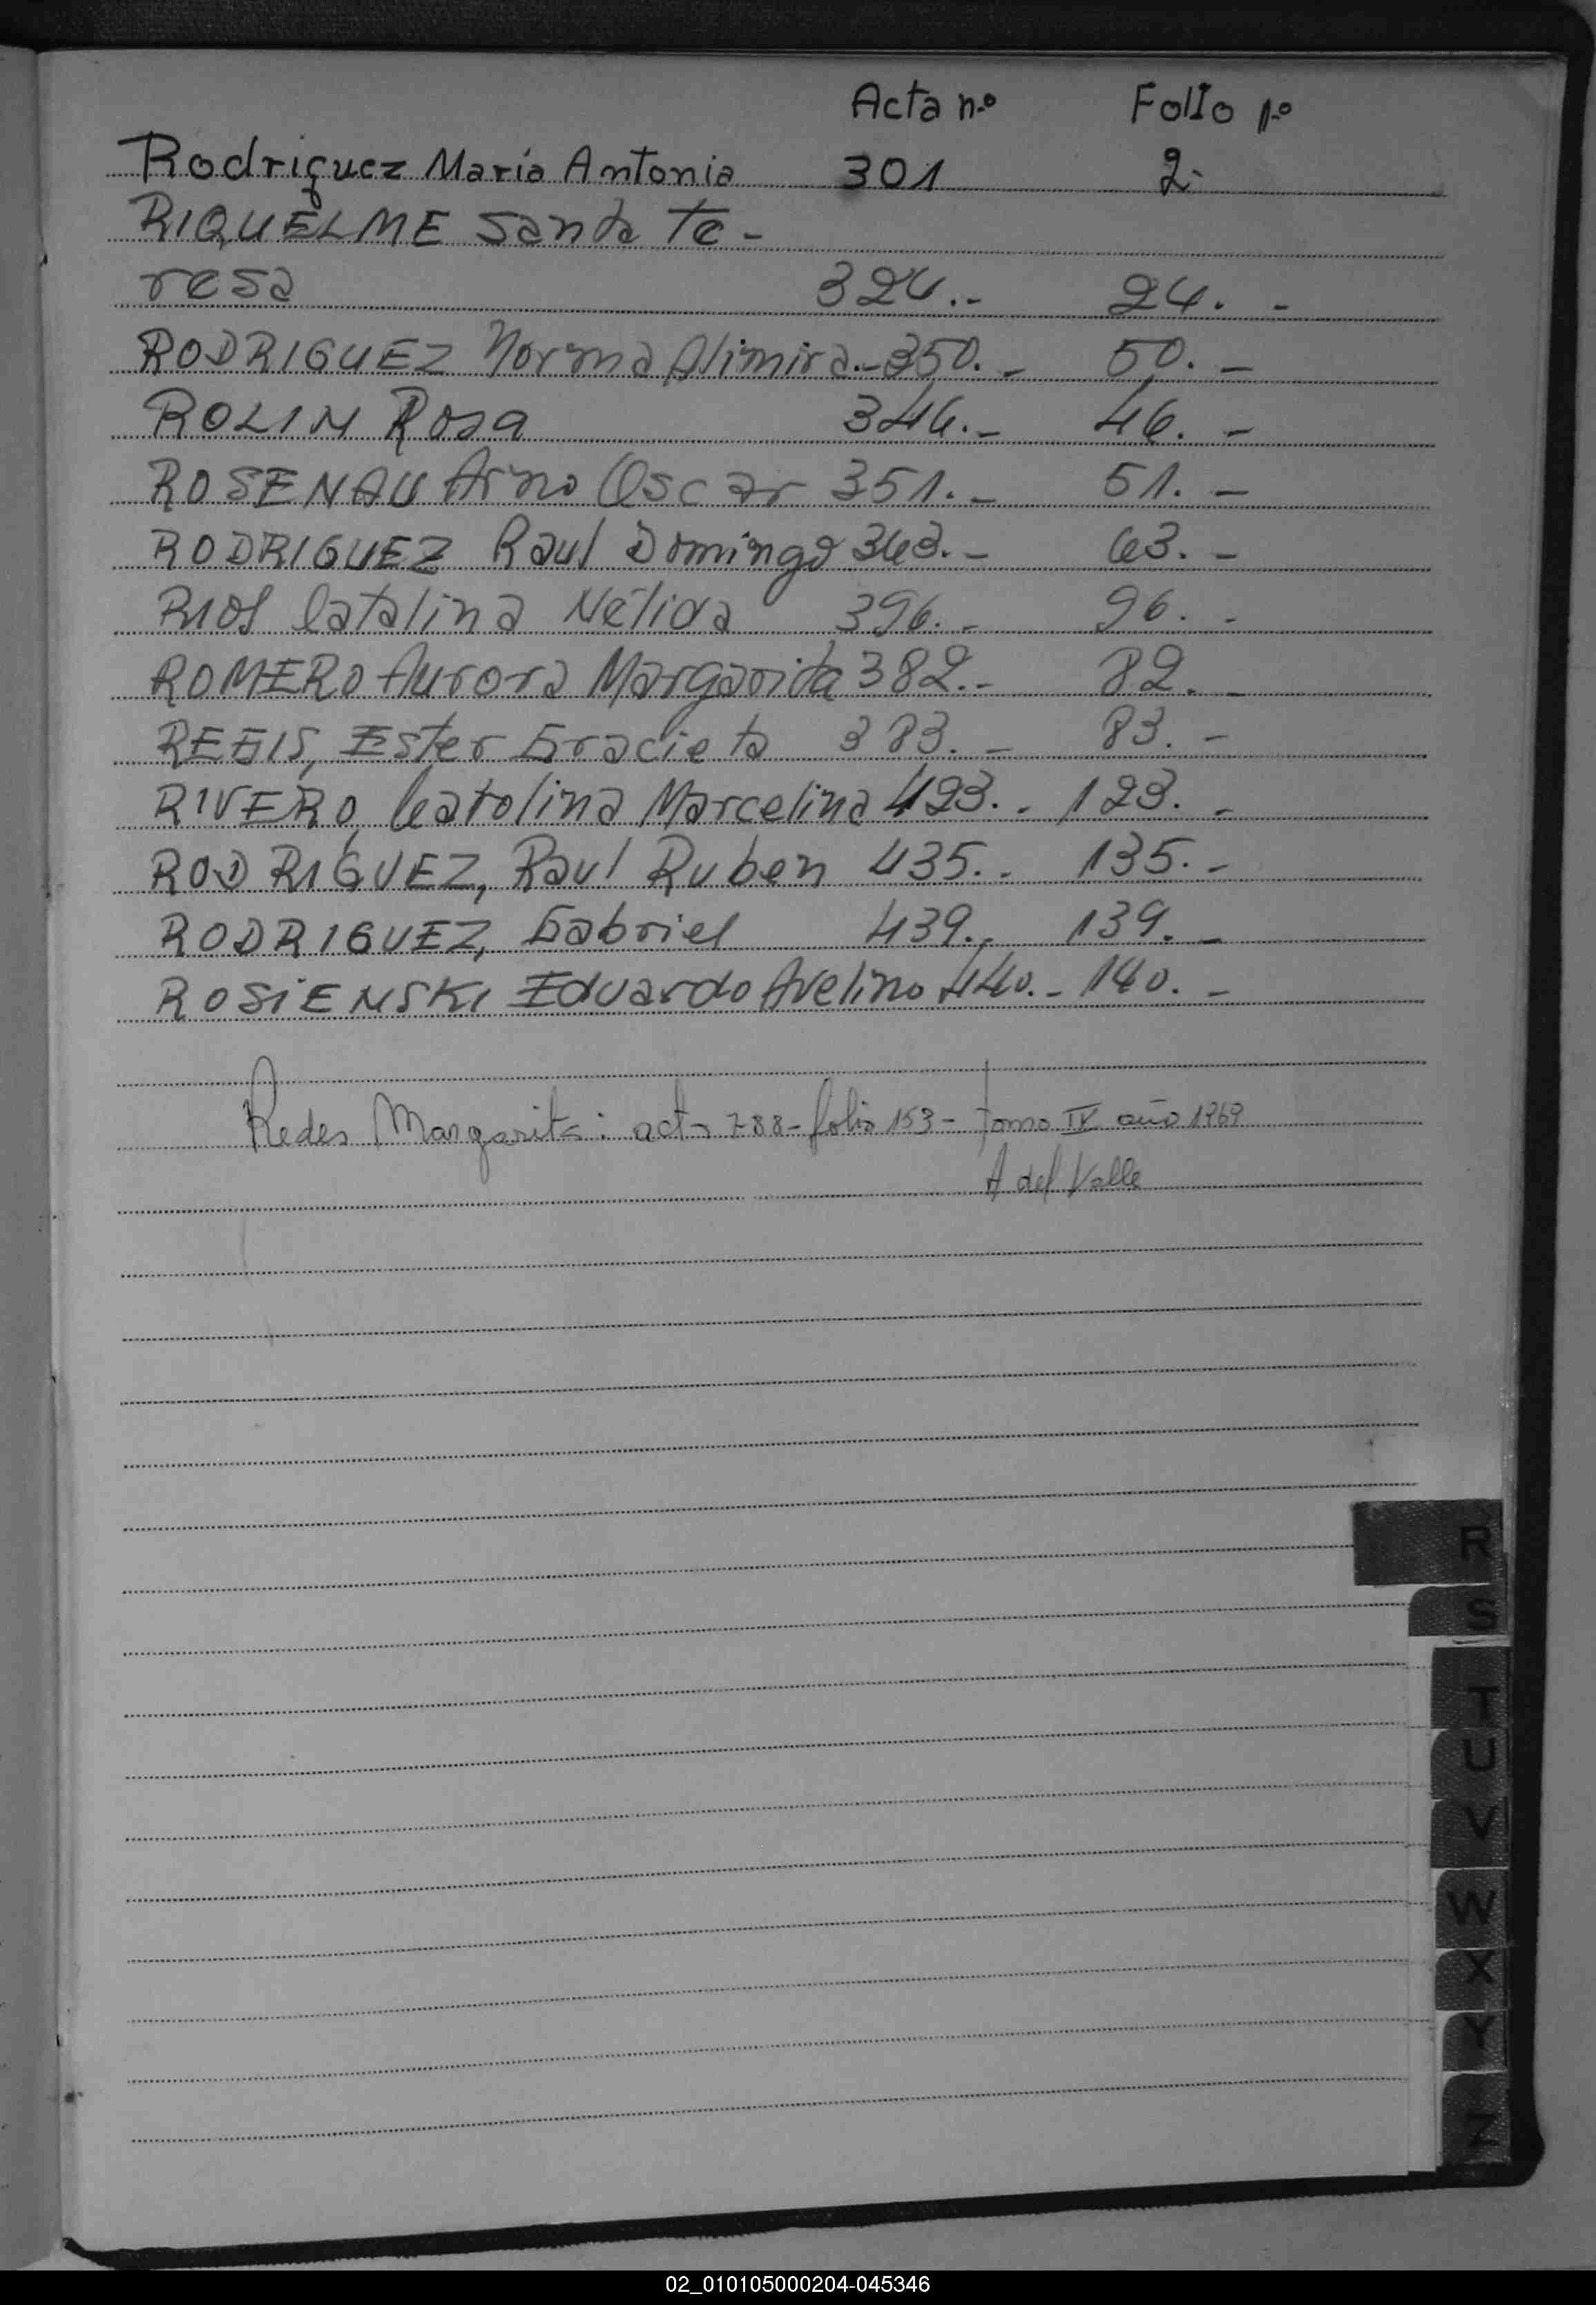 Acta n.º Folio n.º
Rodriguez María Antonia 301 2.
RIQUELME Santa Te-
resa 324.- 24. -
RODRIGUEZ Norma Alimira.- 350.- 50. -
ROLIN Rosa 346.- 46. -
ROSENAU Arno Oscar 351.- 51. -
RODRIGUEZ Raul Domingo 363.- 63. -
RIOS Catalina Nélida 396.- 96. -
ROMERO Aurora Margarita 382.- 82. -
REGIS, Ester Gracieta 383.- 83. -
RIVERO, Catolina Marcelina 423.- 123. -
RODRIGUEZ, Raul Ruben 435.- 135. -
RODRIGUEZ, Gabriel 439.- 139. -
ROSIENSKI Eduardo Avelino 440.- 140. -
Redes Margarita: acta 788- folio 153- tomo IV año 1969
A del Valle
R
S
T
U
V
W
X
Y
Z
02_010105000204-045346